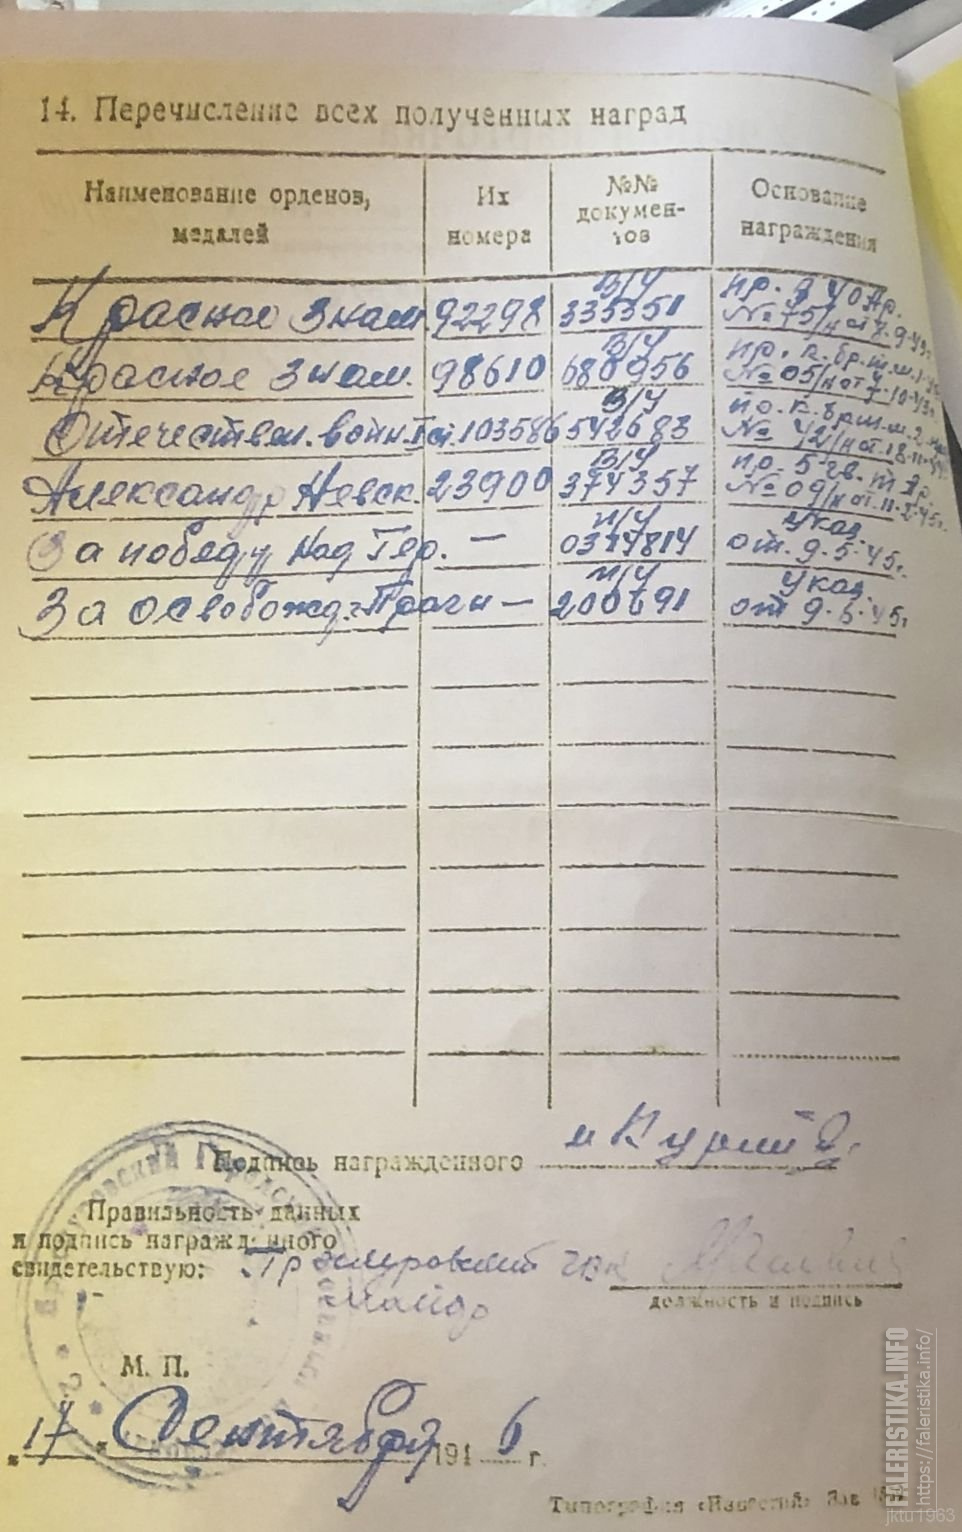 14. Перечисление всех полученных наград
Наименование орденов, медалей
Их номера
№№ документов
Основание награждения
Красное Знам. 92298 В/У 335351 пр. 40 Ар. № 75/н от 8.9.43г.
Красное Знам. 98610 В/У 680956 № 05/н от 10.43г.
Отечествен. войн. I ст. 103586 В/У 542683 № 42/н от 18.11.44г.
Александр Невск. 23900 В/У 374357 пр. 5 гв. т Ар. № 09/н от 11.2.45г.
За победу над Гер. — 0374814 Указ. от 9.5.45г.
За освобожд. Праги — 200691 Указ. от 9.6.45г.
Подпись награжденного
Правильность данных
и подпись награжденного
свидетельствую:
майор
должность и подпись
М. П.
„17" Сентября 1946 г.
Типография «Известий» Зак
FALERISTIKA.INFO
https://faleristika.info/
jktu1963